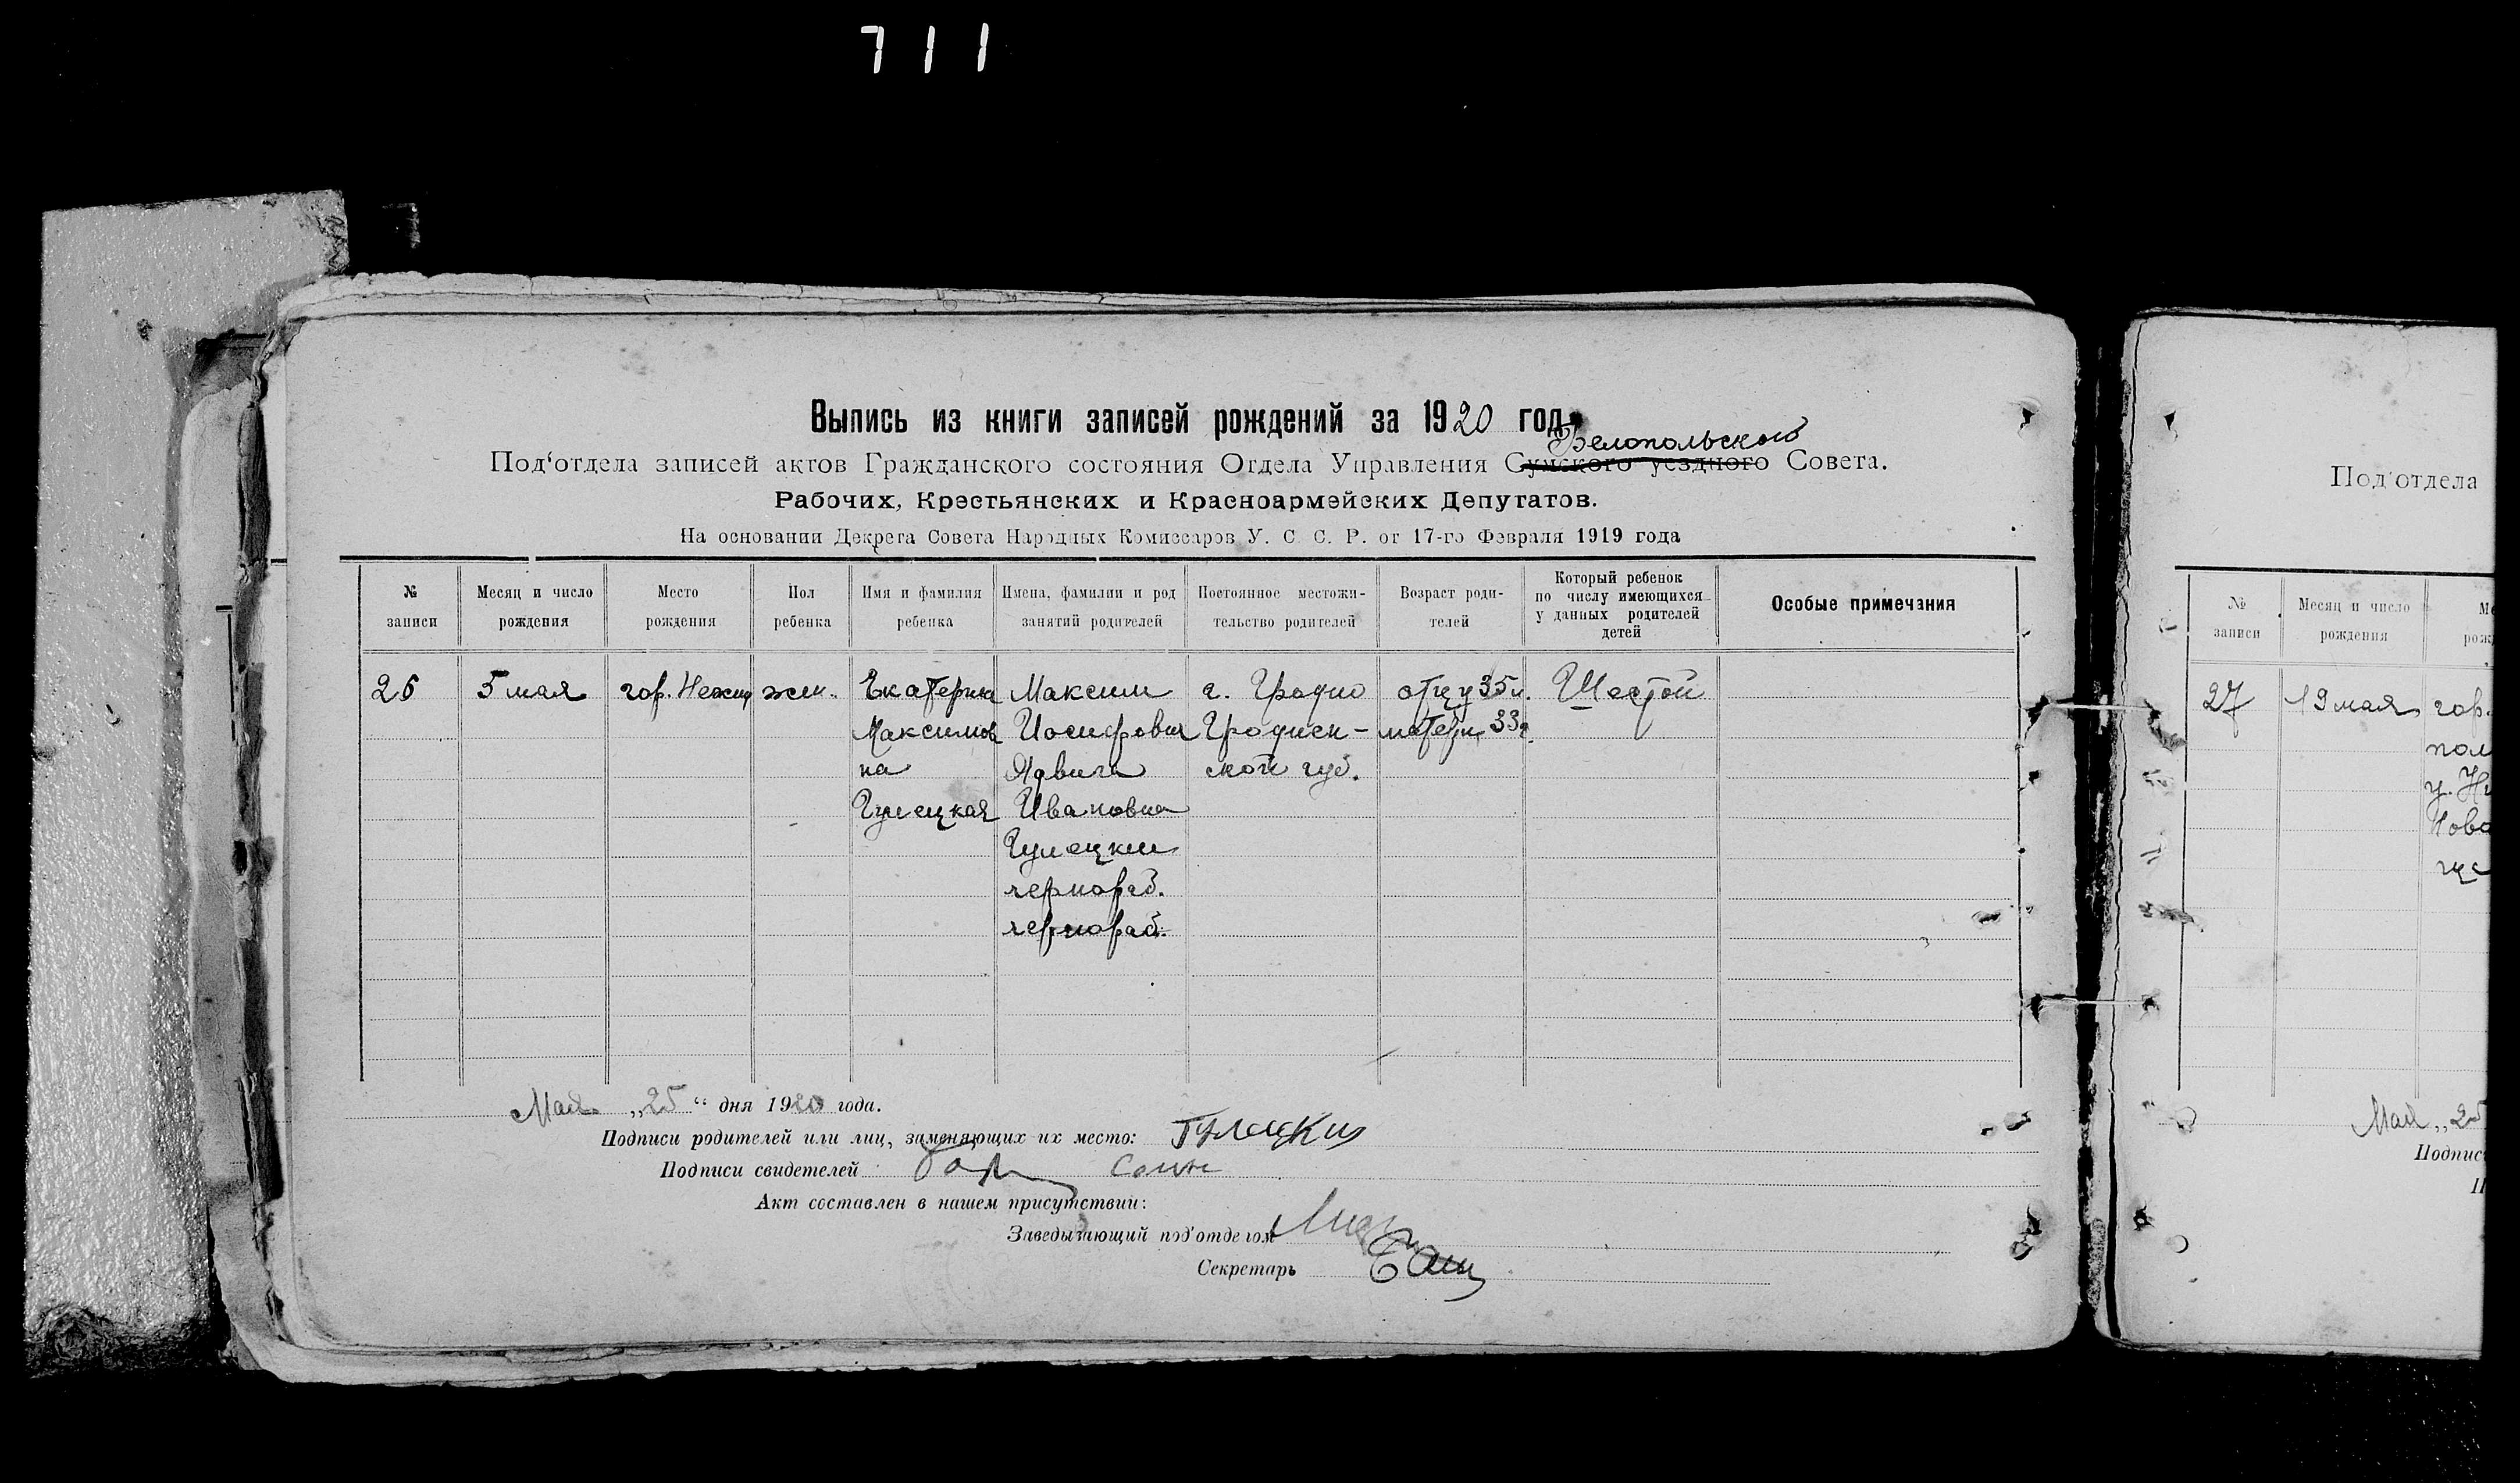 711
Выпись из книги записей рождений за 1920 год
Белопольского
Под‘отдела записей актов Гражданского состояния Отдела Управления Сумского уездного Совета.
Рабочих, Крестьянских и Красноармейских Депутатов.
На основании Декрета Совета Народных Комиссаров У. С. С. Р. от 17-го Февраля 1919 года
№ записи
Месяц и число рождения
Место рождения
Пол ребенка
Имя и фамилия ребенка
Имена, фамилии и род занятий родителей
Постоянное местожи-тельство родителей
Возраст роди-телей
Который ребенок по числу имеющихся у данных родителей детей
Особые примечания
26 5 мая гор. Нежин жен. Екатерина Максим г. Гродно отцу 35 л. Шестой
Максимов Иосифович Гроднен- матери 33 г.
на Ядвига ской губ.
Гулецкая Ивановна
Гулецкие
чернораб.
чернораб.
Мая „25“ дня 1920 года.
Подписи родителей или лиц, заменяющих их место: Гулецкий
Подписи свидетелей
Акт составлен в нашем присутствии:
Заведывающий под‘отделом
Секретарь
Под‘отдела
№ записи
Месяц и число рождения
27 19 мая гор.
пол
у.
Мая „25